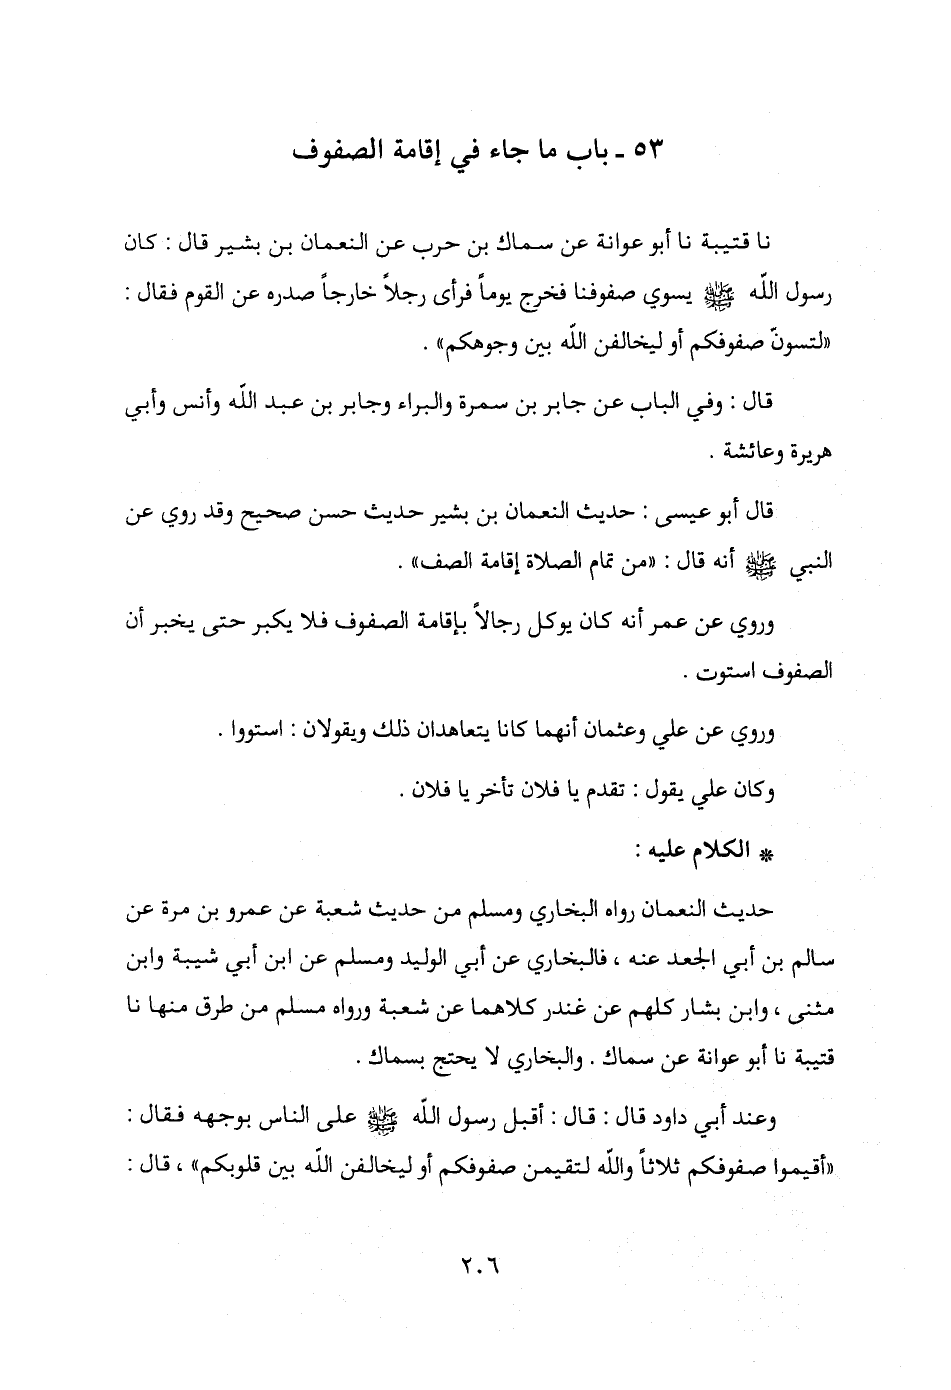 ٥٣ ـ باب ما جاء في إقامة الصفوف
نا قتيبة نا أبو عوانة عن سماك بن حرب عن النعمان بن بشير قال : كان
رسول اللّه ﷺ يسوي صفوفنا فخرج يوماً فرأى رجلاً خارجاً صدره عن القوم فقال :
«لتسونّ صفوفكم أو ليخالفن اللّه بين وجوهكم» .
قال : وفي الباب عن جابر بن سمرة والبراء وجابر بن عبد اللّه وأنس وأبي
هريرة وعائشة .
قال أبو عيسى : حديث النعمان بن بشير حديث حسن صحيح وقد روي عن
النبي ﷺ أنه قال : «من تمام الصلاة إقامة الصف» .
وروي عن عمر أنه كان يوكل رجالاً بإقامة الصفوف فلا يكبر حتى يخبر أن
الصفوف استوت .
وروي عن علي وعثمان أنهما كانا يتعاهدان ذلك ويقولان : استووا .
وكان علي يقول : تقدم يا فلان تأخر يا فلان .
* الكلام عليه :
حديث النعمان رواه البخاري ومسلم من حديث شعبة عن عمرو بن مرة عن
سالم بن أبي الجعد عنه ، فالبخاري عن أبي الوليد ومسلم عن ابن أبي شيبة وابن
مثنى ، وابن بشار كلهم عن غندر كلاهما عن شعبة ورواه مسلم من طرق منها نا
قتيبة نا أبو عوانة عن سماك . والبخاري لا يحتج بسماك .
وعند أبي داود قال : قال : أقبل رسول اللّه ﷺ على الناس بوجهه فقال :
«أقيموا صفوفكم ثلاثاً واللّه لتقيمن صفوفكم أو ليخالفن اللّه بين قلوبكم» ، قال :
٢٠٦